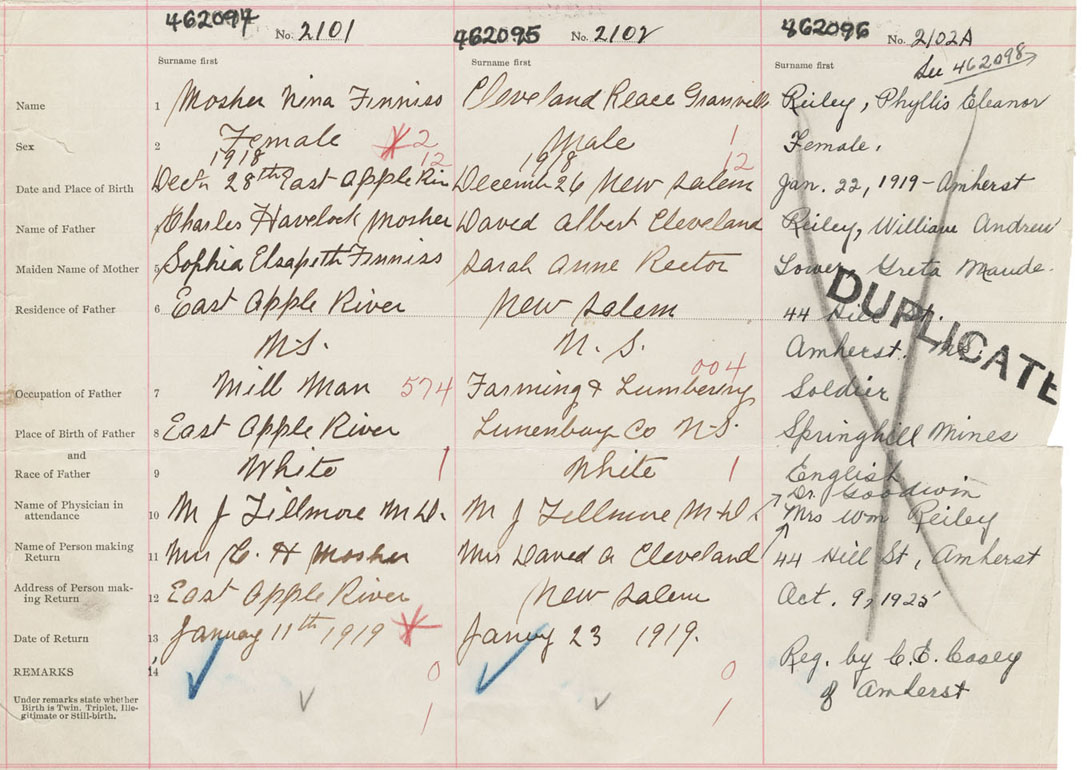 462094 No. 2101 462095 No. 2102 462096 No. 2102A
See 462098
Surname first Surname first Surname first
Name 1 Mosher Nina Finniss Cleveland Reace Granville Reiley, Phyllis Eleanor
Sex 2 Female 2 Male 1 Female.
1918 12 1918 12
Date and Place of Birth Decth 28th East Apple Riv December 26 New Salem Jan. 22, 1919 - Amherst
Name of Father Charles Havelock Mosher Daved Albert Cleveland Reiley, William Andrew
Maiden Name of Mother 5 Sophia Elsapeth Finniss Sarah Anne Rector Lower, Greta Maude.
Residence of Father 6 East Apple River New Salem 44 Hill St.
N.S. N. S. Amherst. N.S.
DUPLICATE
004
Occupation of Father 7 Mill Man 574 Farming & Lumbering Soldier
Place of Birth of Father 8 East Apple River Lunenbuay Co N.S. Springhill Mines
and
Race of Father 9 White 1 White 1 English
Dr. Goodwin
Name of Physician in
attendance 10 M J Fillmore M.D. M J Fillmore M.D. Mrs Wm Reiley
Name of Person making
Return 11 Mrs C. H Mosher Mrs Daved A Cleveland 44 Hill St, Amherst
Address of Person mak-
ing Return 12 East Apple River New Salem Oct. 9, 1925
Date of Return 13 January 11th 1919 Janury 23 1919.
Reg. by C.E. Casey
REMARKS 14 0 0 of Amherst
Under remarks state whether
Birth is Twin, Triplet, Ille-
gitimate or Still-birth. 1 1